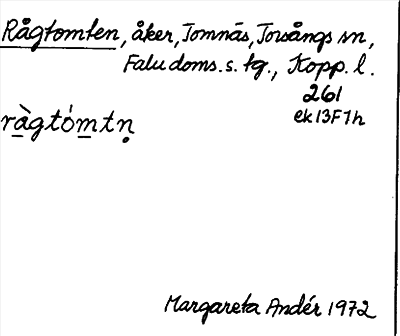 Rågtomten, åker, Tomnäs, Torsångs sn,
Falu doms. s. tg., Kopp. l.
261
ek 13F1h
ràgtómtṇ
Margareta Andér 1972